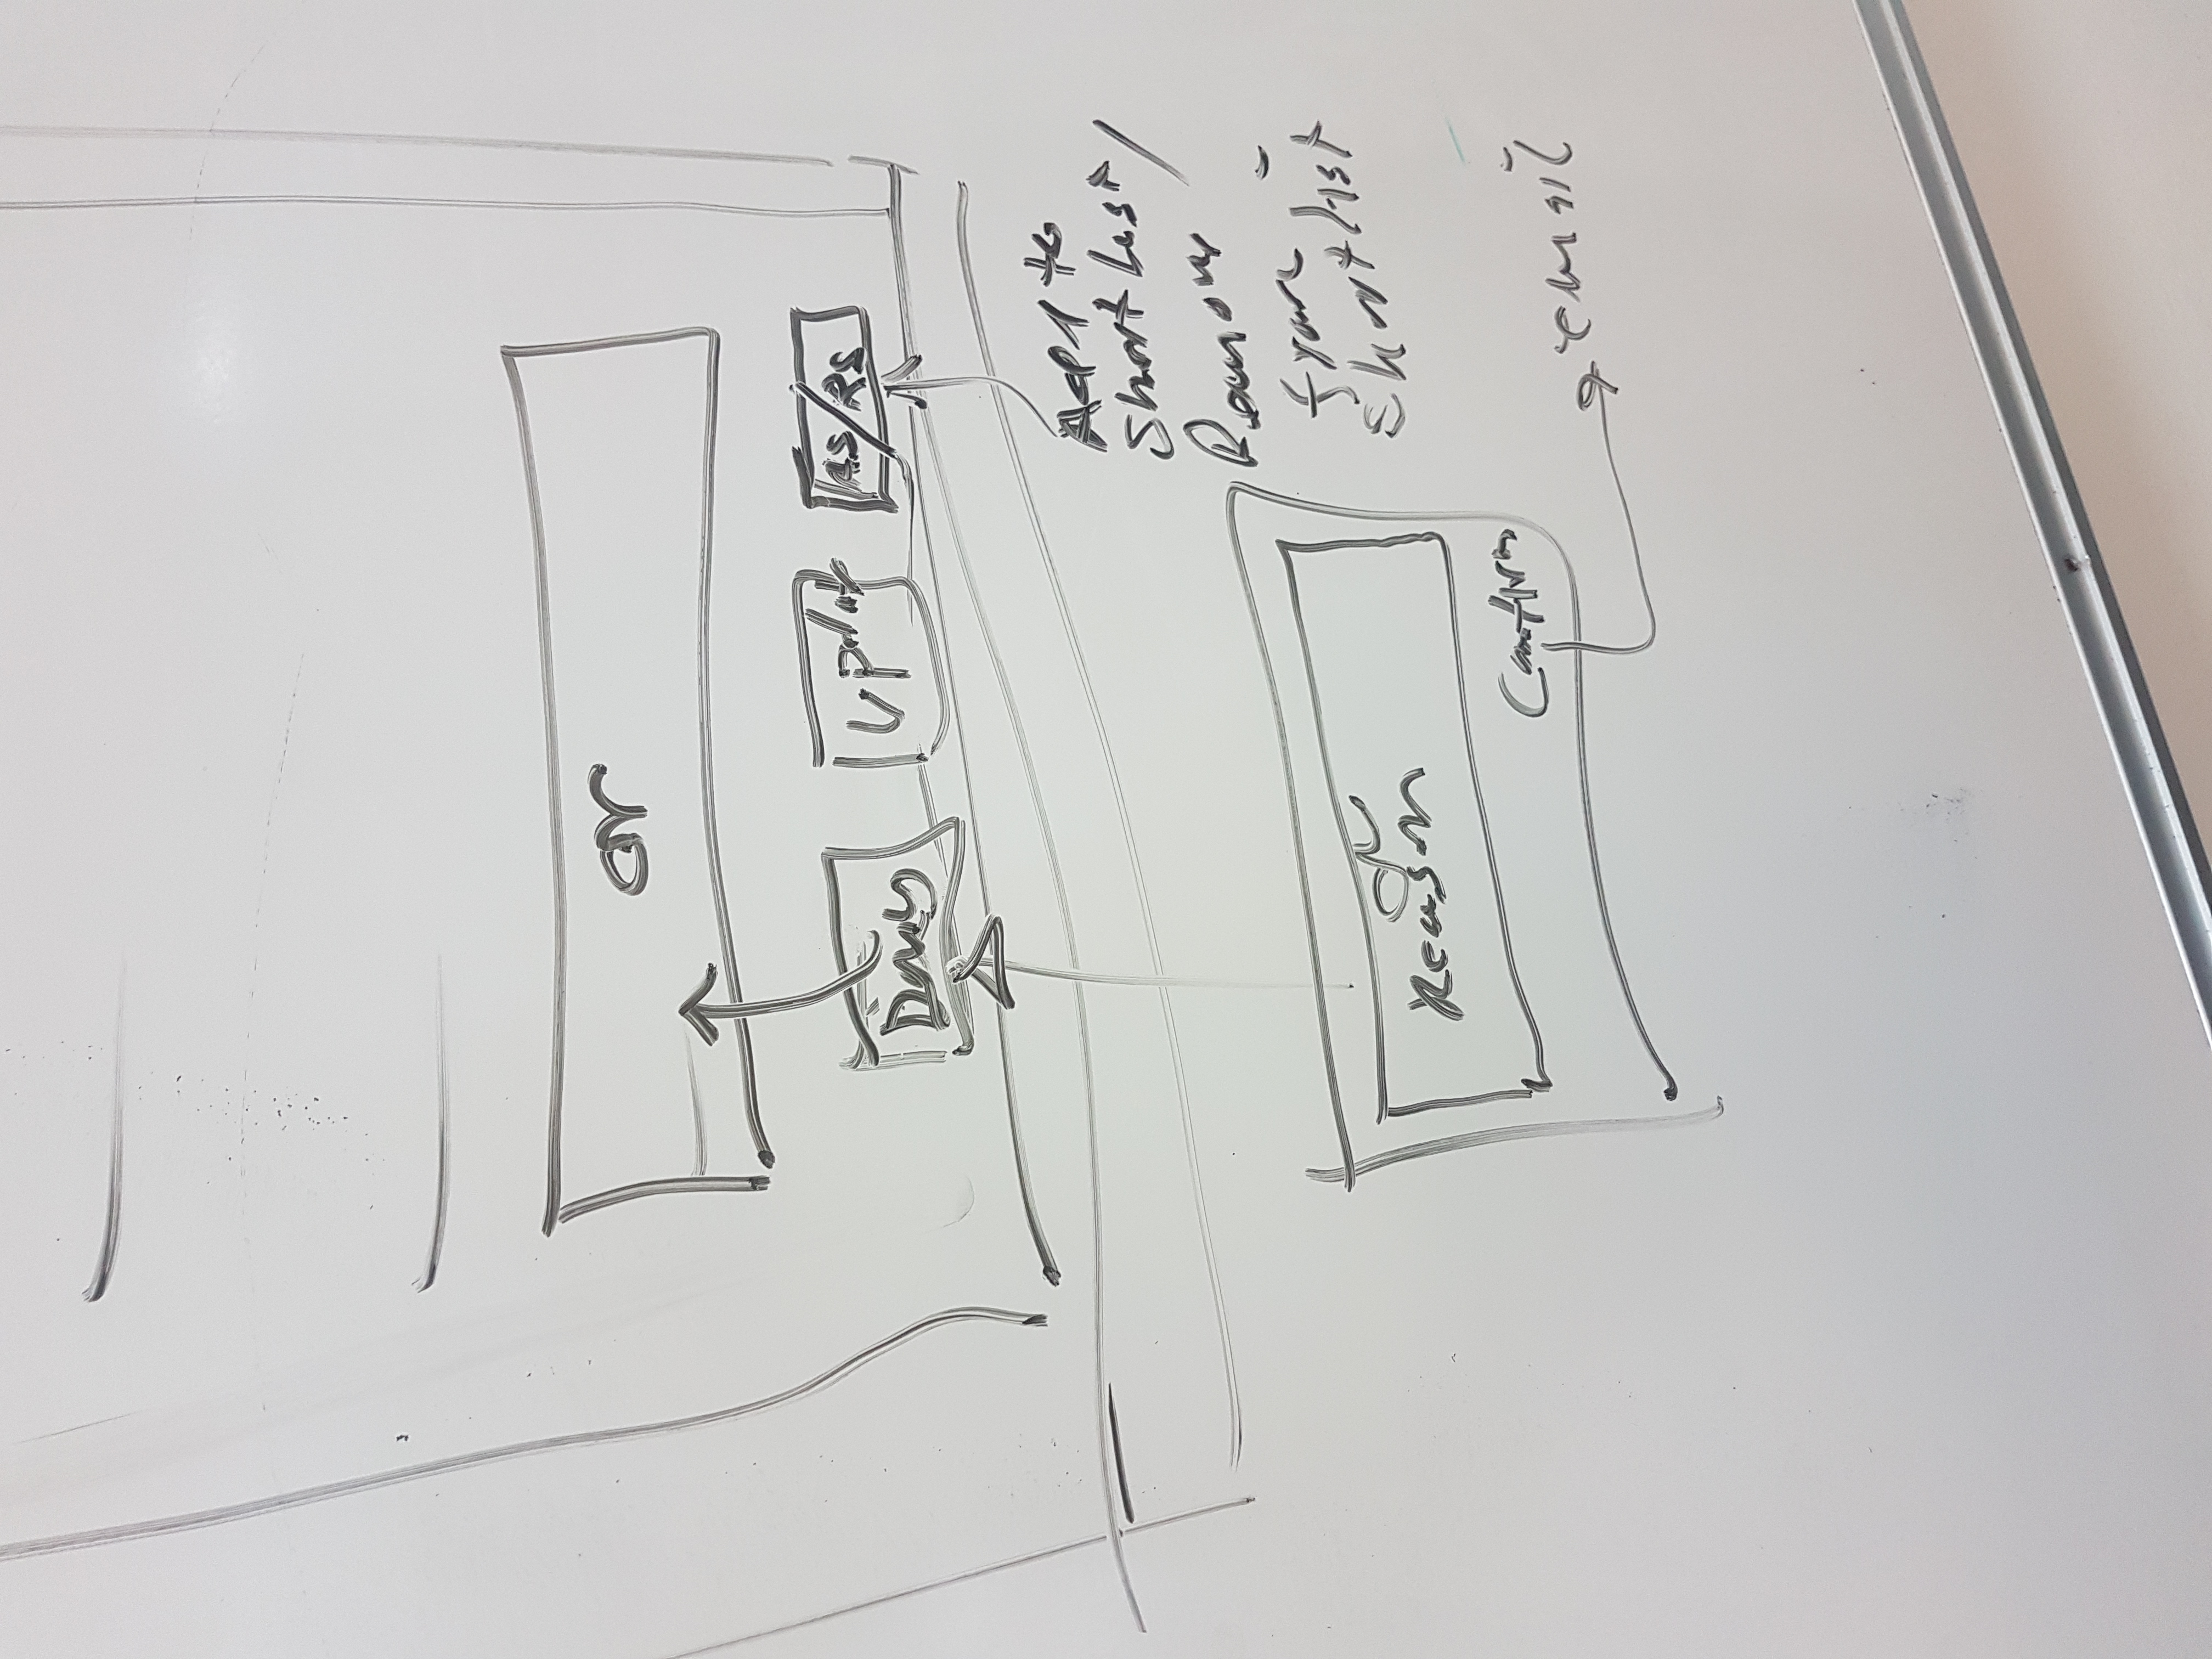 Deny
Update
AS/RS
Add to
Short List/
Remove
from
Shortlist
Reason
Confirm
email